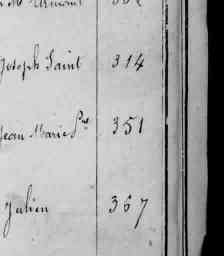 Joseph Saint 314
Jean Marie 351
Julien 367